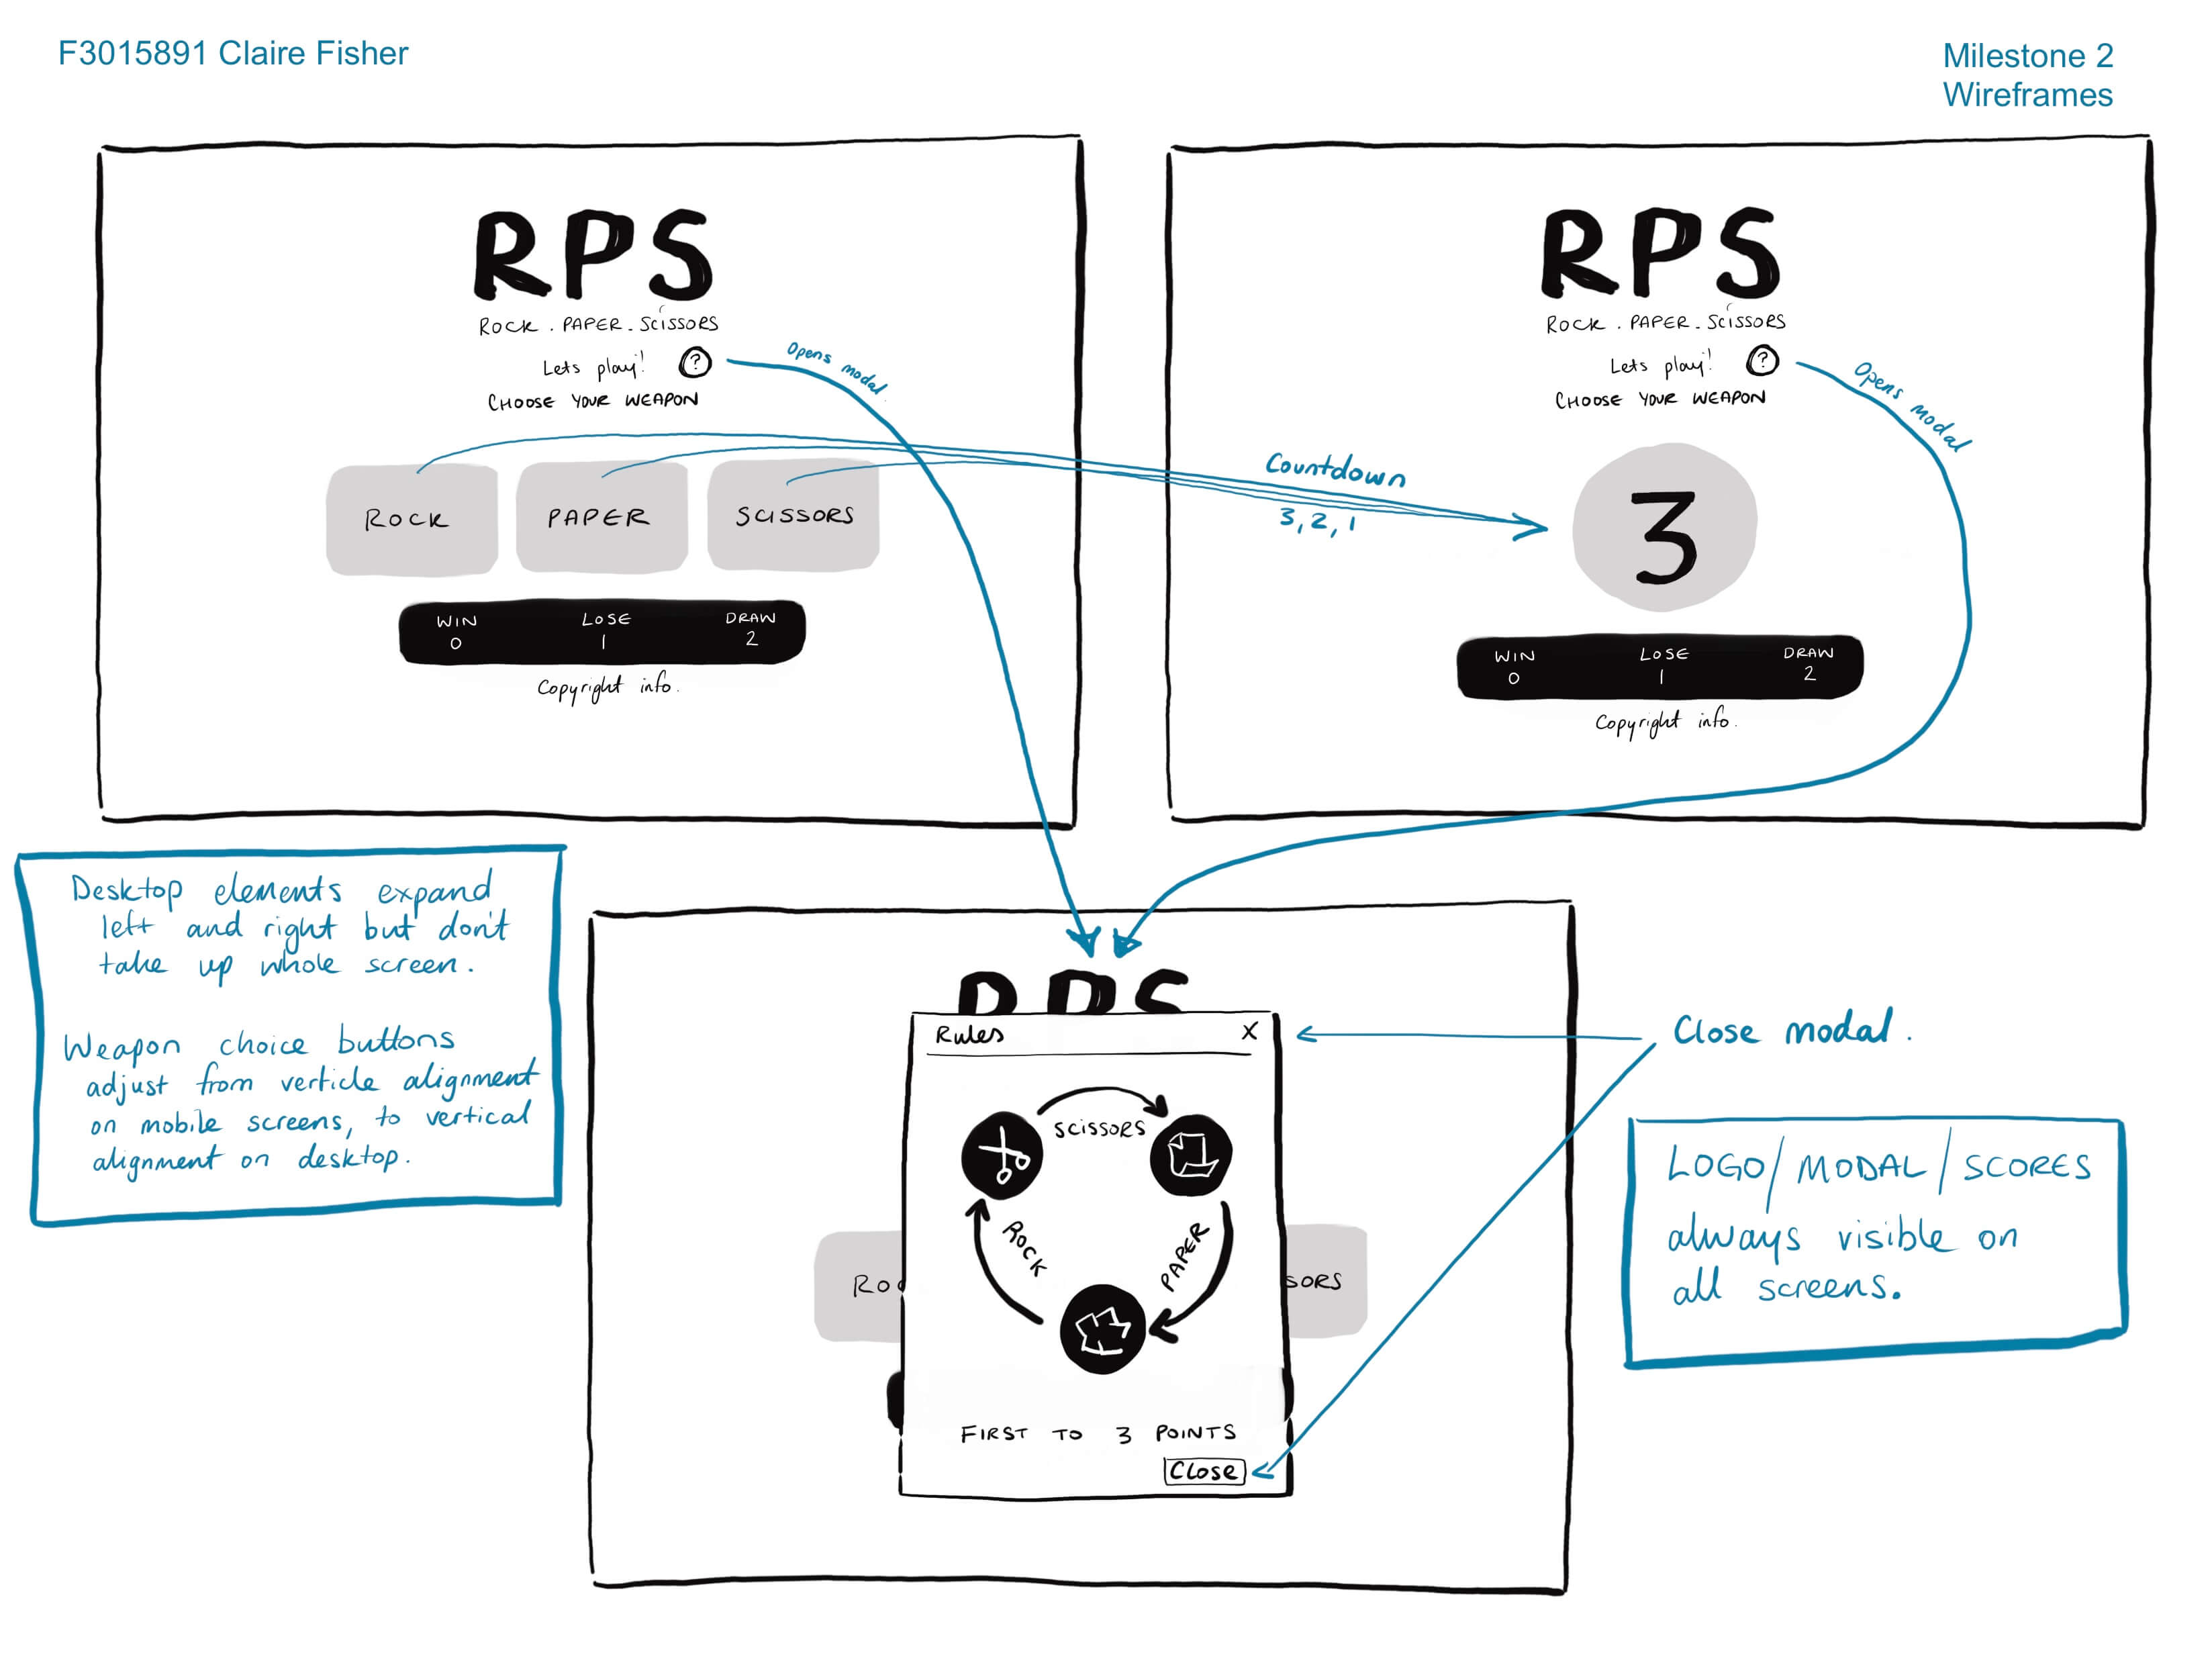 F3015891 Claire Fisher
Milestone 2
Wireframes
RPS
ROCK . PAPER . SCISSORS
Lets play! ?
CHOOSE YOUR WEAPON
Opens modal.
ROCK PAPER SCISSORS
WIN LOSE DRAW
0 1 2
Copyright info.
Countdown
3, 2, 1
RPS
ROCK . PAPER . SCISSORS
Lets play! ?
CHOOSE YOUR WEAPON
Opens modal
3
WIN LOSE DRAW
0 1 2
Copyright info.
Desktop elements expand
left and right but don't
take up whole screen.
Weapon choice buttons
adjust from verticle alignment
on mobile screens, to vertical
alignment on desktop.
RPS
Rules X
SCISSORS
ROCK
PAPER
ROC
SORS
FIRST TO 3 POINTS
Close
Close modal.
LOGO/MODAL/SCORES
always visible on
all screens.